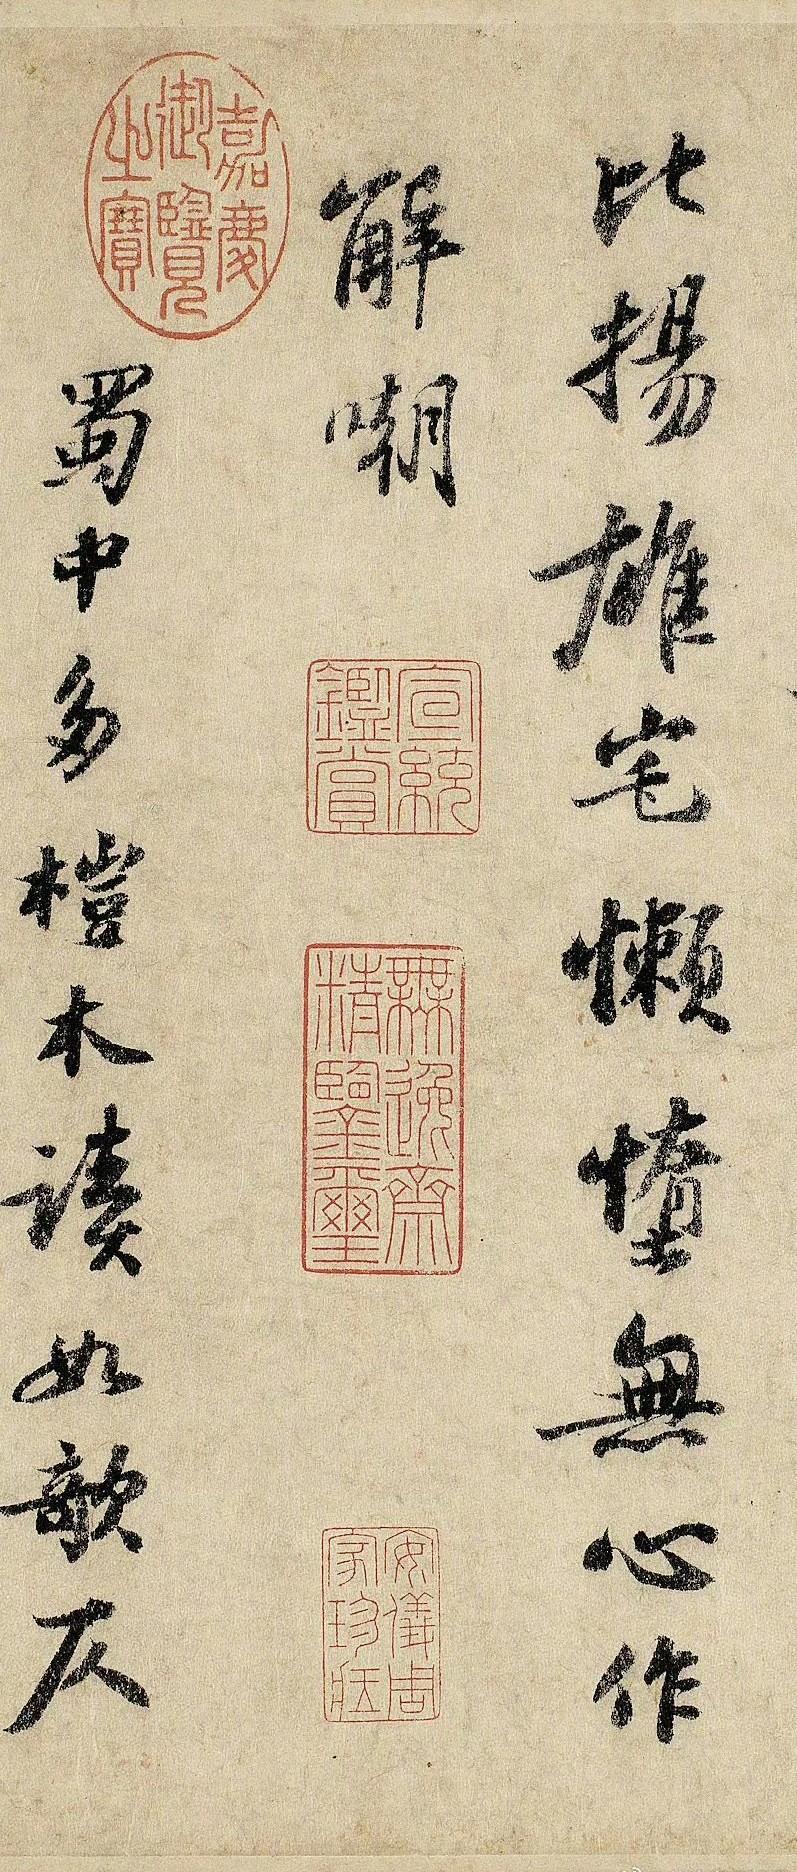 比揚雄宅懶墮無心作
解嘲
蜀中多榿木讀如欹仄
嘉慶
御覽
之寶
宣統
鑑賞
無逸齋
精鑒璽
安儀周
家珍藏